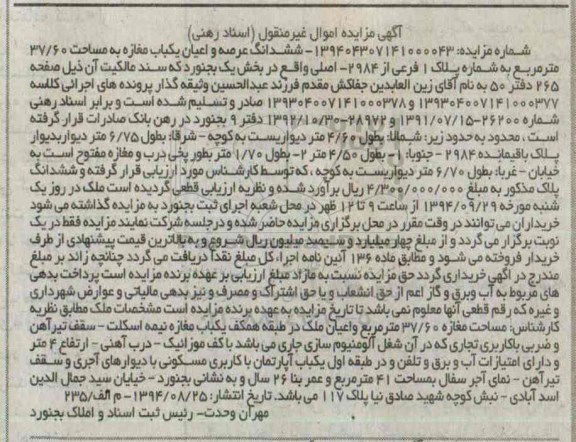 آگهی مزایده اموال غیرمنقول (اسناد رهنی)
شماره مزایده: ۱۳۹۴۰۴۳۰۷۱۴۱۰۰۰۰۴۳- ششدانگ عرصه و اعیان یکباب مغازه به مساحت ۳۷/۶۰
مترمربع به شماره پلاک ۱ فرعی از ۲۹۸۴- اصلی واقع در بخش یک بجنورد که سند مالکیت آن ذیل صفحه
۲۶۵ دفتر ۵۰ به نام آقای زین العابدین جفاکش مقدم فرزند عبدالحسین وثیقه گذار پرونده های اجرائی کلاسه
۱۳۹۳۰۴۰۰۷۱۴۱۰۰۰۳۷۷ و ۱۳۹۳۰۴۰۰۷۱۴۱۰۰۰۳۷۸ صادر و تسلیم شده است و برابر اسناد رهنی
شماره ۲۶۲۰۰-۱۳۹۱/۰۷/۱۵ و ۲۸۹۷۲-۱۳۹۲/۱۰/۳۰ دفتر ۹ بجنورد در رهن بانک صادرات قرار گرفته
است ، محدود به حدود زیر: شمالا: بطول ۴/۶۰ متر دیواریست به کوچه - شرقا: بطول ۶/۷۵ متر دیواربدیوار
پلاک باقیمانده ۲۹۸۴ - جنوبا: ۱- بطول ۴/۵۰ متر ۲- بطول ۱/۷۰ متر بطور پخی درب و مغازه مفتوح است به
خیابان - غربا: بطول ۶/۷۰ متر دیواریست به کوچه ، که توسط کارشناس مورد ارزیابی قرار گرفته و ششدانگ
پلاک مذکور به مبلغ ۴/۳۰۰/۰۰۰/۰۰۰ ریال برآورد شده و نظریه ارزیابی قطعی گردیده است ملک در روز یک
شنبه مورخه ۱۳۹۴/۰۹/۲۹ از ساعت ۹ تا ۱۲ ظهر در محل شعبه اجرای ثبت بجنورد به مزایده گذاشته می شود
خریداران می توانند در وقت مقرر در محل برگزاری مزایده حاضر شده و در جلسه شرکت نمایند مزایده فقط در یک
نوبت برگزار می گردد و از مبلغ چهار میلیارد و سیصد میلیون ریال شروع و به بالاترین قیمت پیشنهادی از طرف
خریدار فروخته می شود و مطابق ماده ۱۳۶ آئین نامه اجرا، کل مبلغ نقداً دریافت می گردد چنانچه زائد بر مبلغ
مندرج در آگهی خریداری گردد حق مزایده نسبت به مازاد مبلغ ارزیابی بر عهده برنده مزایده است پرداخت بدهی
های مربوط به آب وبرق و گاز اعم از حق انشعاب و یا حق اشتراک و مصرف و نیز بدهی مالیاتی و عوارض شهرداری
و غیره که رقم قطعی آنها معلوم نمی باشد تا تاریخ مزایده به عهده برنده مزایده است مشخصات ملک مطابق نظریه
کارشناس: مساحت مغازه ۳۷/۶۰ مترمربع واعیان ملک در طبقه همکف یکباب مغازه نیمه اسکلت - سقف تیرآهن
و ضربی باکاربری تجاری که در آن شغل آلومنیوم سازی جاری می باشد با کف موزائیک - درب آهنی - ارتفاع ۴ متر
و دارای امتیازات آب و برق و تلفن و در طبقه اول یکباب آپارتمان با کاربری مسکونی با دیوارهای آجری و سقف
تیرآهن - نمای آجر سفال بمساحت ۴۱ مترمربع و عمر بنا ۲۶ سال و به نشانی بجنورد - خیابان سید جمال الدین
اسد آبادی - نبش کوچه شهید صادق نیا پلاک ۱۱۷ می باشد. تاریخ انتشار: ۱۳۹۴/۰۸/۲۵ - م الف/۲۳۵
مهران وحدت- رئیس ثبت اسناد و املاک بجنورد